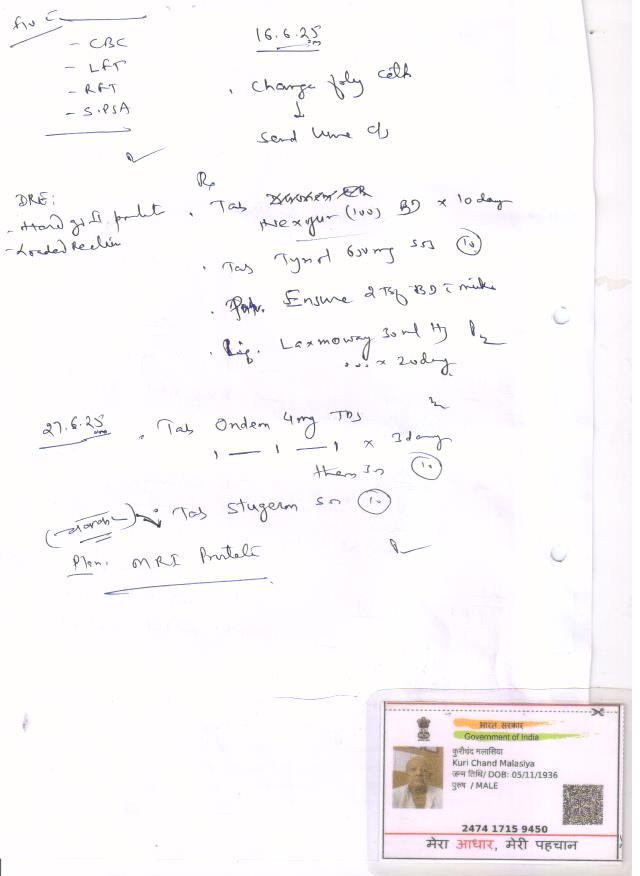 - CBC
- LFT
- RFT
- S.PSA
16.6.25
. Change foly cath
↓
Send Urine c/s
DRE:
- Hard
- Loaded
Rx
. Tab
(100) BD x 10 day
. Tab 650 mg SOS (10)
. Ensure 2 Tsf BD c milk
. Liq. Laxmoway 30 ml HS
x 20 day
27.6.25
. Tab Ondem 4mg TDS
1 — 1 — 1 x 3 day
then (10)
. Tab Stugeron (10)
Plan. MRI
भारत सरकार
Government of India
कुरीचंद मलासिया
Kuri Chand Malasiya
जन्म तिथि/ DOB: 05/11/1936
पुरुष / MALE
2474 1715 9450
मेरा आधार, मेरी पहचान